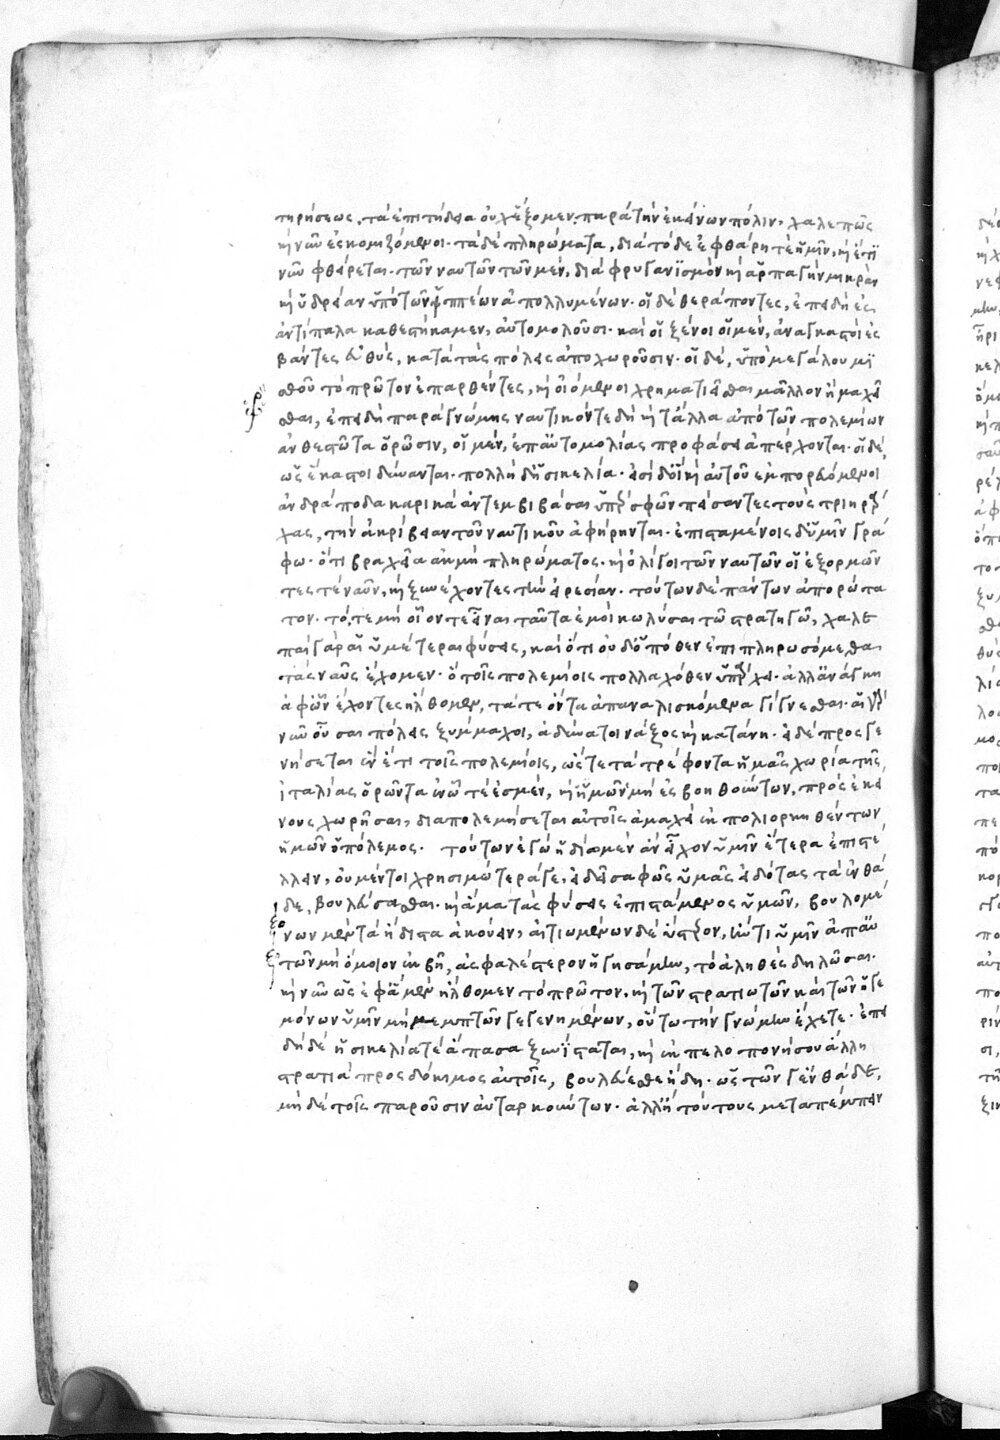 τηρήσεως. τὰ ἐπιτήδεια οὐχ ἕξομεν παρὰ τὴν ἐκείνων πόλιν, χαλεπῶς
καὶ νῦν ἐσκομιζόμενοι. τὰ δὲ πληρώματα, διὰ τόδε ἐφθάρη τὲ ἡμῖν, καὶ ἔτι
νῦν φθείρεται. τῶν ναυτῶν τῶν μὲν, διὰ φρυγανισμὸν καὶ ἁρπαγὴν μακρὰν
καὶ ὑδρείαν ὑπὸ τῶν ἱππέων ἀπολλυμένων. οἱ δὲ θεράποντες, ἐπειδὴ ἐς
ἀντίπαλα καθεστήκαμεν, αὐτομολοῦσι. καὶ οἱ ξένοι οἱ μὲν, ἀναγκαστοὶ ἐς
βάντες εὐθὺς, κατὰ τὰς πόλεις ἀποχωροῦσιν. οἱ δὲ, ὑπὸ μεγάλου μι
σθοῦ τὸ πρῶτον ἐπαρθέντες, καὶ οἰόμενοι χρηματιεῖσθαι μᾶλλον ἢ μαχεῖ
σθαι, ἐπειδὴ παρὰ γνώμην ναυτικόν τε δὴ καὶ τἄλλα ἀπὸ τῶν πολεμίων
ἀνθεστῶτα ὁρῶσιν, οἱ μὲν, ἐπ' αὐτομολίας προφάσει ἀπέρχονται. οἱ δὲ,
ὡς ἕκαστοι δύνανται. πολλὴ δ' ἡ σικελία. εἰσὶ δ' οἳ καὶ αὐτοῦ ἐμπορευόμενοι
ἀνδράποδα καρικὰ ἀντεμβιβάσαι ὑπὲρ σφῶν πείσαντες τοὺς τριηράρ
χας, τὴν ἀκρίβειαν τοῦ ναυτικοῦ ἀφήρηνται. ἐπισταμένοις δ' ὑμῖν γρά
φω. ὅτι βραχεῖα ἀκμὴ πληρώματος. καὶ ὀλίγοι τῶν ναυτῶν οἱ ἐξορμῶν
τες τὲ ναῦν, καὶ ξυνέχοντες τὴν εἰρεσίαν. τούτων δὲ πάντων ἀπορώτα
τον. τό, τε μὴ οἷόν τε εἶναι ταῦτα ἐμοὶ κωλῦσαι τῷ στρατηγῷ, χαλε
παὶ γὰρ αἱ ὑμέτεραι φύσεις, καὶ ὅτι οὐδ' ὁπόθεν ἐπιπληρωσόμεθα
τὰς ναῦς ἔχομεν. ὃ τοῖς πολεμίοις πολλαχόθεν ὑπάρχει. ἀλλ' ἀνάγκη
ἀφ' ὧν ἔχοντες ἤλθομεν, τά τε ὄντα ἀπαναλισκόμενα γίγνεσθαι. αἱ γὰρ
νῦν οὖσαι πόλεις ξύμμαχοι, ἀδύνατοι νάξος καὶ κατάνη. εἰ δὲ προσγε
νήσεται ἓν ἔτι τοῖς πολεμίοις, ὥστε τὰ τρέφοντα ἡμᾶς χωρία τῆς
ἰταλίας ὁρῶντα ἐν ᾧ τέ ἐσμὲν, καὶ ὑμῶν μὴ ἐς βοηθούντων, πρὸς ἐκεί
νους χωρῆσαι, διαπολεμήσεται αὐτοῖς ἀμαχεὶ ἐκπολιορκηθέντων
ἡμῶν ὁ πόλεμος. τούτων ἐγὼ ἡδίω μὲν ἂν εἶχον ὑμῖν ἕτερα ἐπιστέ
λλειν, οὐ μέντοι χρησιμώτερά γε, εἰ δεῖ σαφῶς ὑμᾶς εἰδότας τὰ ἐνθά
δε, βουλεύσασθαι. καὶ ἅμα τὰς φύσεις ἐπιστάμενος ὑμῶν, βουλομέ
νων μὲν τὰ ἥδιστα ἀκούειν, αἰτιωμένων δὲ ὕστερον, ἤν τι ὑμῖν ἀπ' αὐ
τῶν μὴ ὅμοιον ἐκβῇ, ἀσφαλέστερον ἡγησάμην, τὸ ἀληθὲς δηλῶσαι.
καὶ νῦν ὡς ἐφ' ἃ μὲν ἤλθομεν τὸ πρῶτον, καὶ τῶν στρατιωτῶν καὶ τῶν ἡγε
μόνων ὑμῖν μὴ μεμπτῶν γεγενημένων, οὕτω τὴν γνώμην ἔχετε. ἐπει
δὴ δὲ ἡ σικελία τὲ ἅπασα ξυνίσταται, καὶ ἐκ πελοπονήσου ἄλλη
στρατιὰ προσδόκιμος αὐτοῖς, βουλεύεσθε ἤδη. ὡς τῶν γ' ἐνθάδε,
μηδὲ τοῖς παροῦσιν ἀνταρκούντων. ἀλλ' ἢ τούτους μεταπέμπειν